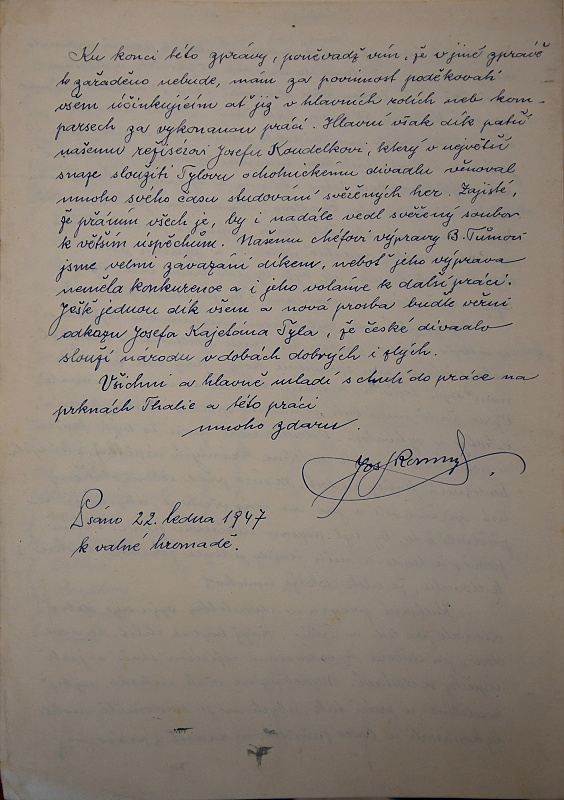 Ku konci této zprávy, poněvadž vím, že v jiné zprávě
to zařaděno nebude, mám za povinnost poděkovati
všem účinkujícím ať již v hlavních rolích neb kom-
parsech za vykonanou práci. Hlavní však dík patří
našemu režisérovi Josefu Koudelkovi, který v největší
snaze sloužiti Tylovu ochotnickému divadlu věnoval
mnoho svého času studování svěřených her. Zajisté,
že přáním všech je, by i nadále vedl svěřený soubor
k větším úspěchům. Našemu chéfovi výpravy B. Tůmovi
jsme velmi zavázáni díkem, neboť jeho výprava
neměla konkurence a i jeho voláme k další práci.
Ještě jednou dík všem a nová prosba buďte věrni
odkazu Josefa Kajetána Tyla, že české divadlo
slouží národu v dobách dobrých i zlých.
Všichni a hlavně mladí s chutí do práce na
prknách Thalie a této práci
mnoho zdaru.
Jos.
Psáno 22. ledna 1947
k valné hromadě.